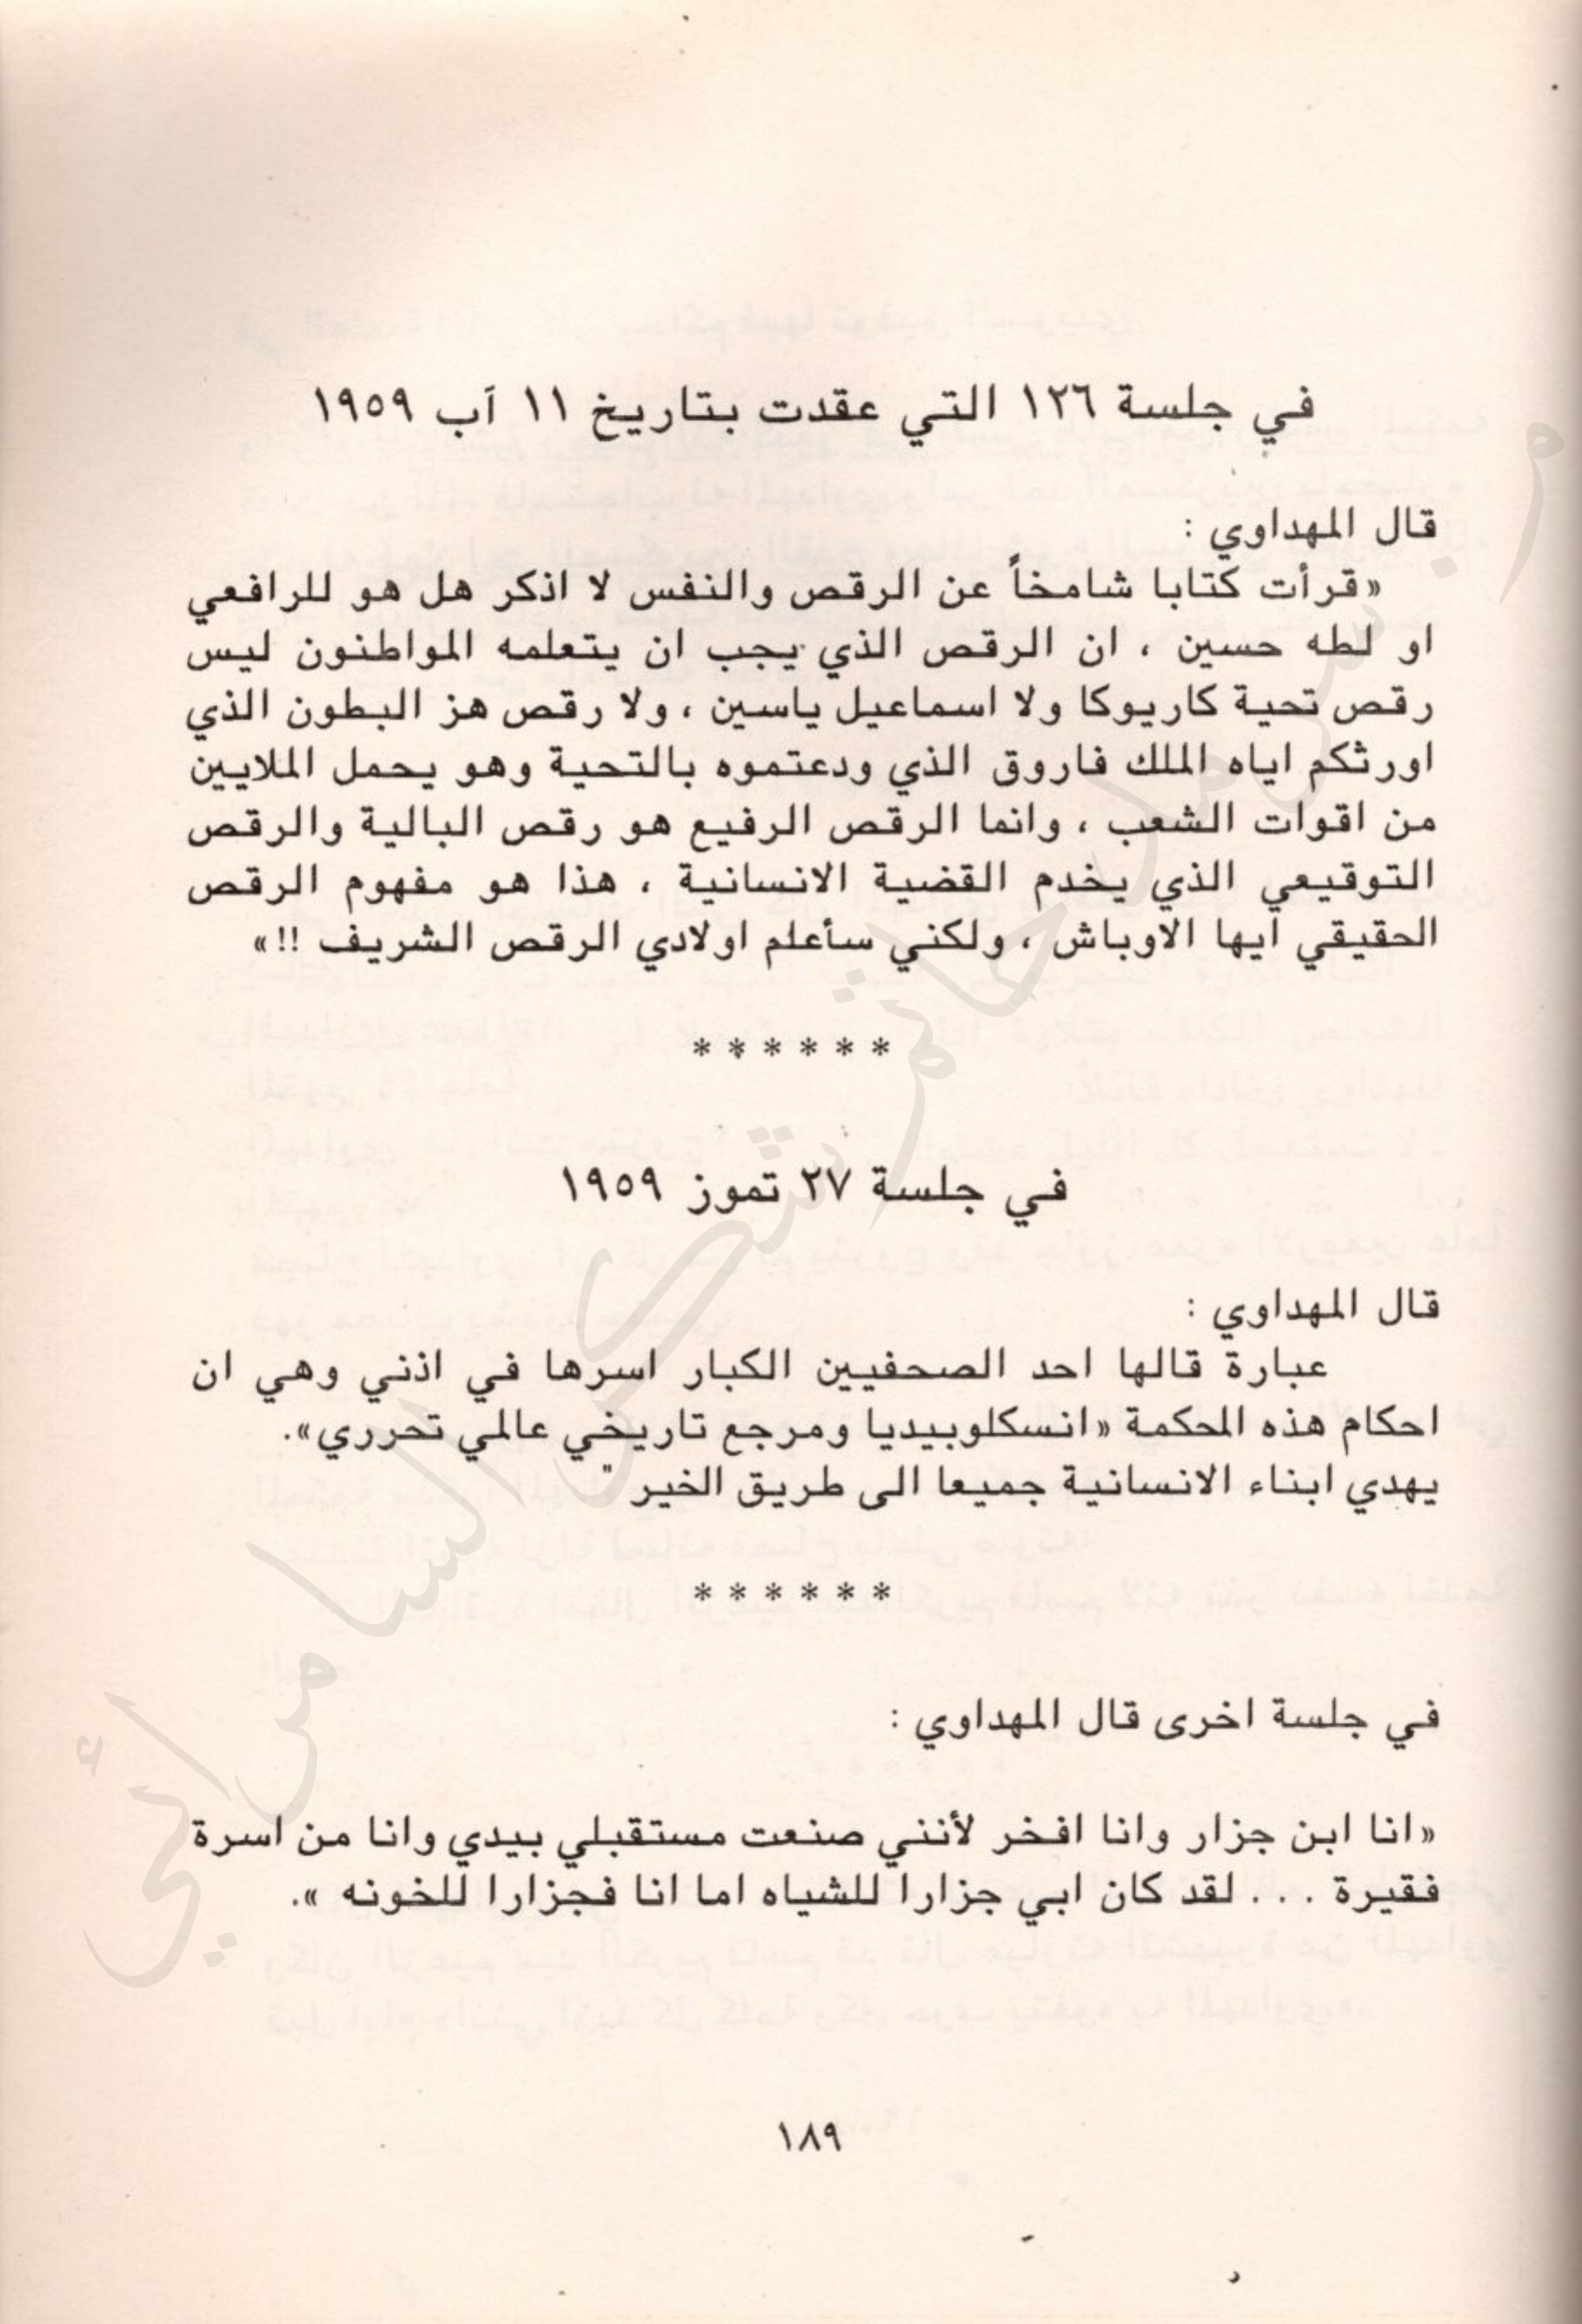 في جلسة ١٢٦ التي عقدت بتاريخ ١١ آب ١٩٥٩
قال المهداوي :
«قرأت كتابا شامخاً عن الرقص والنفس لا اذكر هل هو للرافعي
او لطه حسين ، ان الرقص الذي يجب ان يتعلمه المواطنون ليس
رقص تحية كاريوكا ولا اسماعيل ياسين ، ولا رقص هز البطون الذي
اورثكم اياه الملك فاروق الذي ودعتموه بالتحية وهو يحمل الملايين
من اقوات الشعب ، وانما الرقص الرفيع هو رقص البالية والرقص
التوقيعي الذي يخدم القضية الانسانية ، هذا هو مفهوم الرقص
الحقيقي ايها الاوباش ، ولكني سأعلم اولادي الرقص الشريف !!»
******
في جلسة ٢٧ تموز ١٩٥٩
قال المهداوي :
عبارة قالها احد الصحفيين الكبار اسرها في اذني وهي ان
احكام هذه المحكمة «انسكلوبيديا ومرجع تاريخي عالمي تحرري».
يهدي ابناء الانسانية جميعا الى طريق الخير "
******
في جلسة اخرى قال المهداوي :
«انا ابن جزار وانا افخر لأنني صنعت مستقبلي بيدي وانا من اسرة
فقيرة . . . لقد كان ابي جزارا للشياه اما انا فجزارا للخونه ».
١٨٩